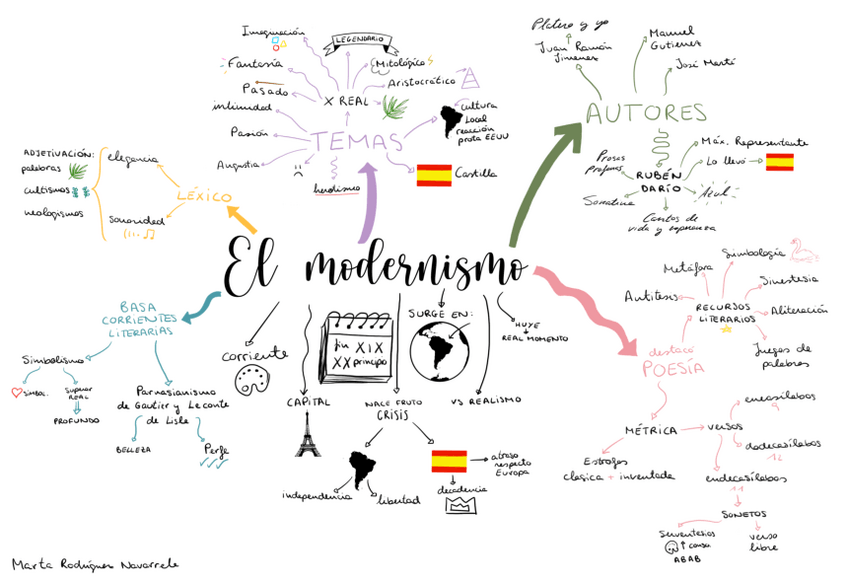 Imaginación
LEGENDARIO
Fantasía
Mitológico
Pasado
Aristocrático
intimidad
X REAL
cultura
Local
reacción
prota EEUU
Pasión
TEMAS
Angustia
Castilla
heroísmo
Platero y yo
Juan Ramón
Jimenez
Manuel
Gutierrez
José Martí
AUTORES
Máx. Representante
Prosas
profanas
Lo llevó
RUBÉN
DARÍO
Sonatina
Azul
Cantos de
vida y esperanza
ADJETIVACIÓN:
palabras
cultismos
neologismos
elegancia
sonoridad
LÉXICO
El modernismo
BASA
CORRIENTES
LITERARIAS
Simbolismo
simbol.
Superar
REAL
PROFUNDO
Parnasianismo
de Gautier y Leconte
de Lisle
BELLEZA
Perfe
corriente
fin XIX
XX principio
SURGE EN:
HUYE
REAL MOMENTO
CAPITAL
NACE FRUTO
CRISIS
VS REALISMO
independencia
libertad
atraso
respecto
Europa
decadencia
Simbología
Metáfora
Sinestesia
Antítesis
RECURSOS
LITERARIOS
Aliteración
Juegos de
palabras
destacó
POESÍA
MÉTRICA
versos
eneasílabos
9
dodecasílabos
12
Estrofas
clasica + inventada
endecasílabos
11
SONETOS
Serventesios
conso
ABAB
verso
libre
Marta Rodríguez Navarrete